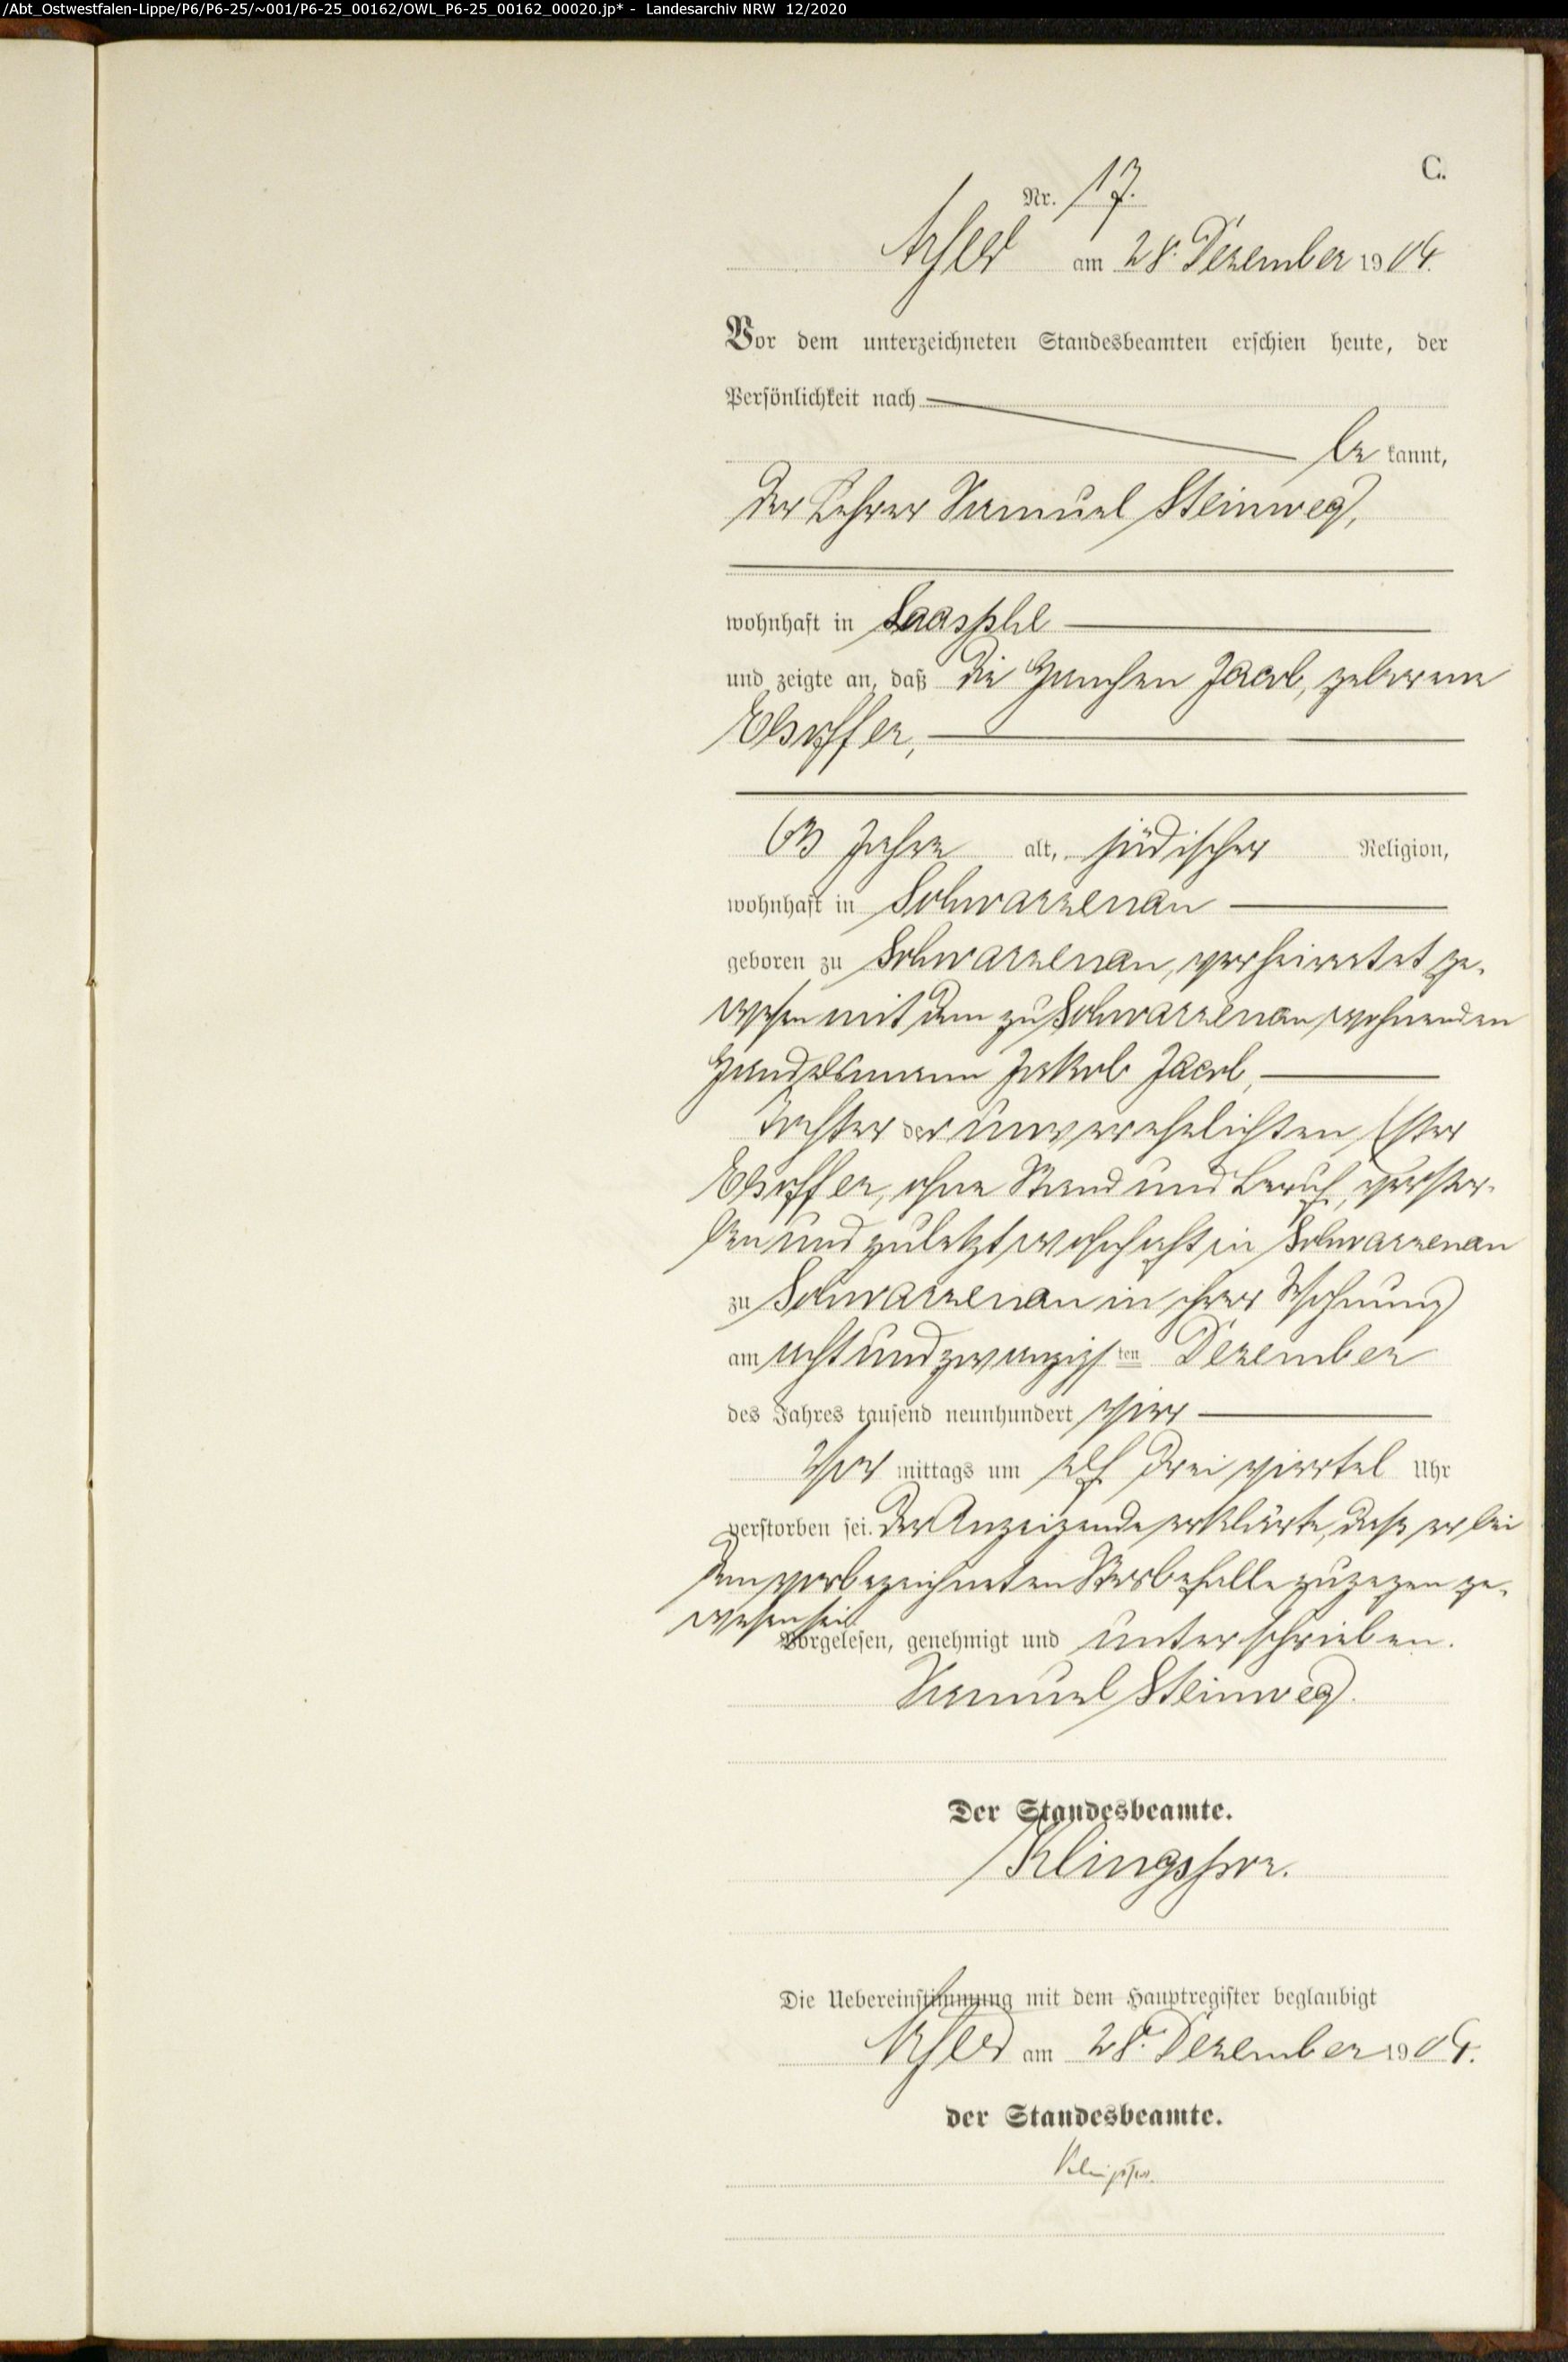 /Abt_Ostwestfalen-Lippe/P6/P6-25/~001/P6-25_00162/OWL_P6-25_00162_00020.jp* - Landesarchiv NRW 12/2020
C.
Nr. 17.
Arfeld am 28. Dezember 1904.
Vor dem unterzeichneten Standesbeamten erschien heute, der
Persönlichkeit nach
be kannt,
der Lehrer Samuel Steinweg,
wohnhaft in Laasphe
und zeigte an, daß die Hanchen Jacob, geborene
Elsoffer,
63 Jahre alt, jüdischer Religion,
wohnhaft in Schwarzenau
geboren zu Schwarzenau, verheiratet ge-
wesen mit dem zu Schwarzenau wohnenden
Handelsmann Jakob Jacob,
Tochter der unverehelichten Ester
Elsoffer, ohne Stand und Beruf, verstor-
ben und zuletzt wohnhaft in Schwarzenau
zu Schwarzenau in ihrer Wohnung
am achtundzwanzigsten Dezember
des Jahres tausend neunhundert vier
Vor mittags um elf drei viertel Uhr
verstorben sei. Der Anzeigende erklärte, daß er bei
dem vorbezeichneten Sterbefalle zugegen ge-
wesen sei.
Vorgelesen, genehmigt und unterschrieben.
Samuel Steinweg.
Der Standesbeamte.
Klingspor.
Die Uebereinstimmung mit dem Hauptregister beglaubigt
Arfeld am 28. Dezember 1904.
der Standesbeamte.
Klingspor.